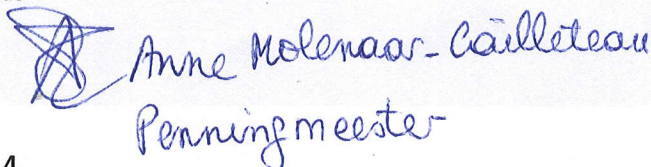 Anne Molenaar-Cailleteau
Penningmeester